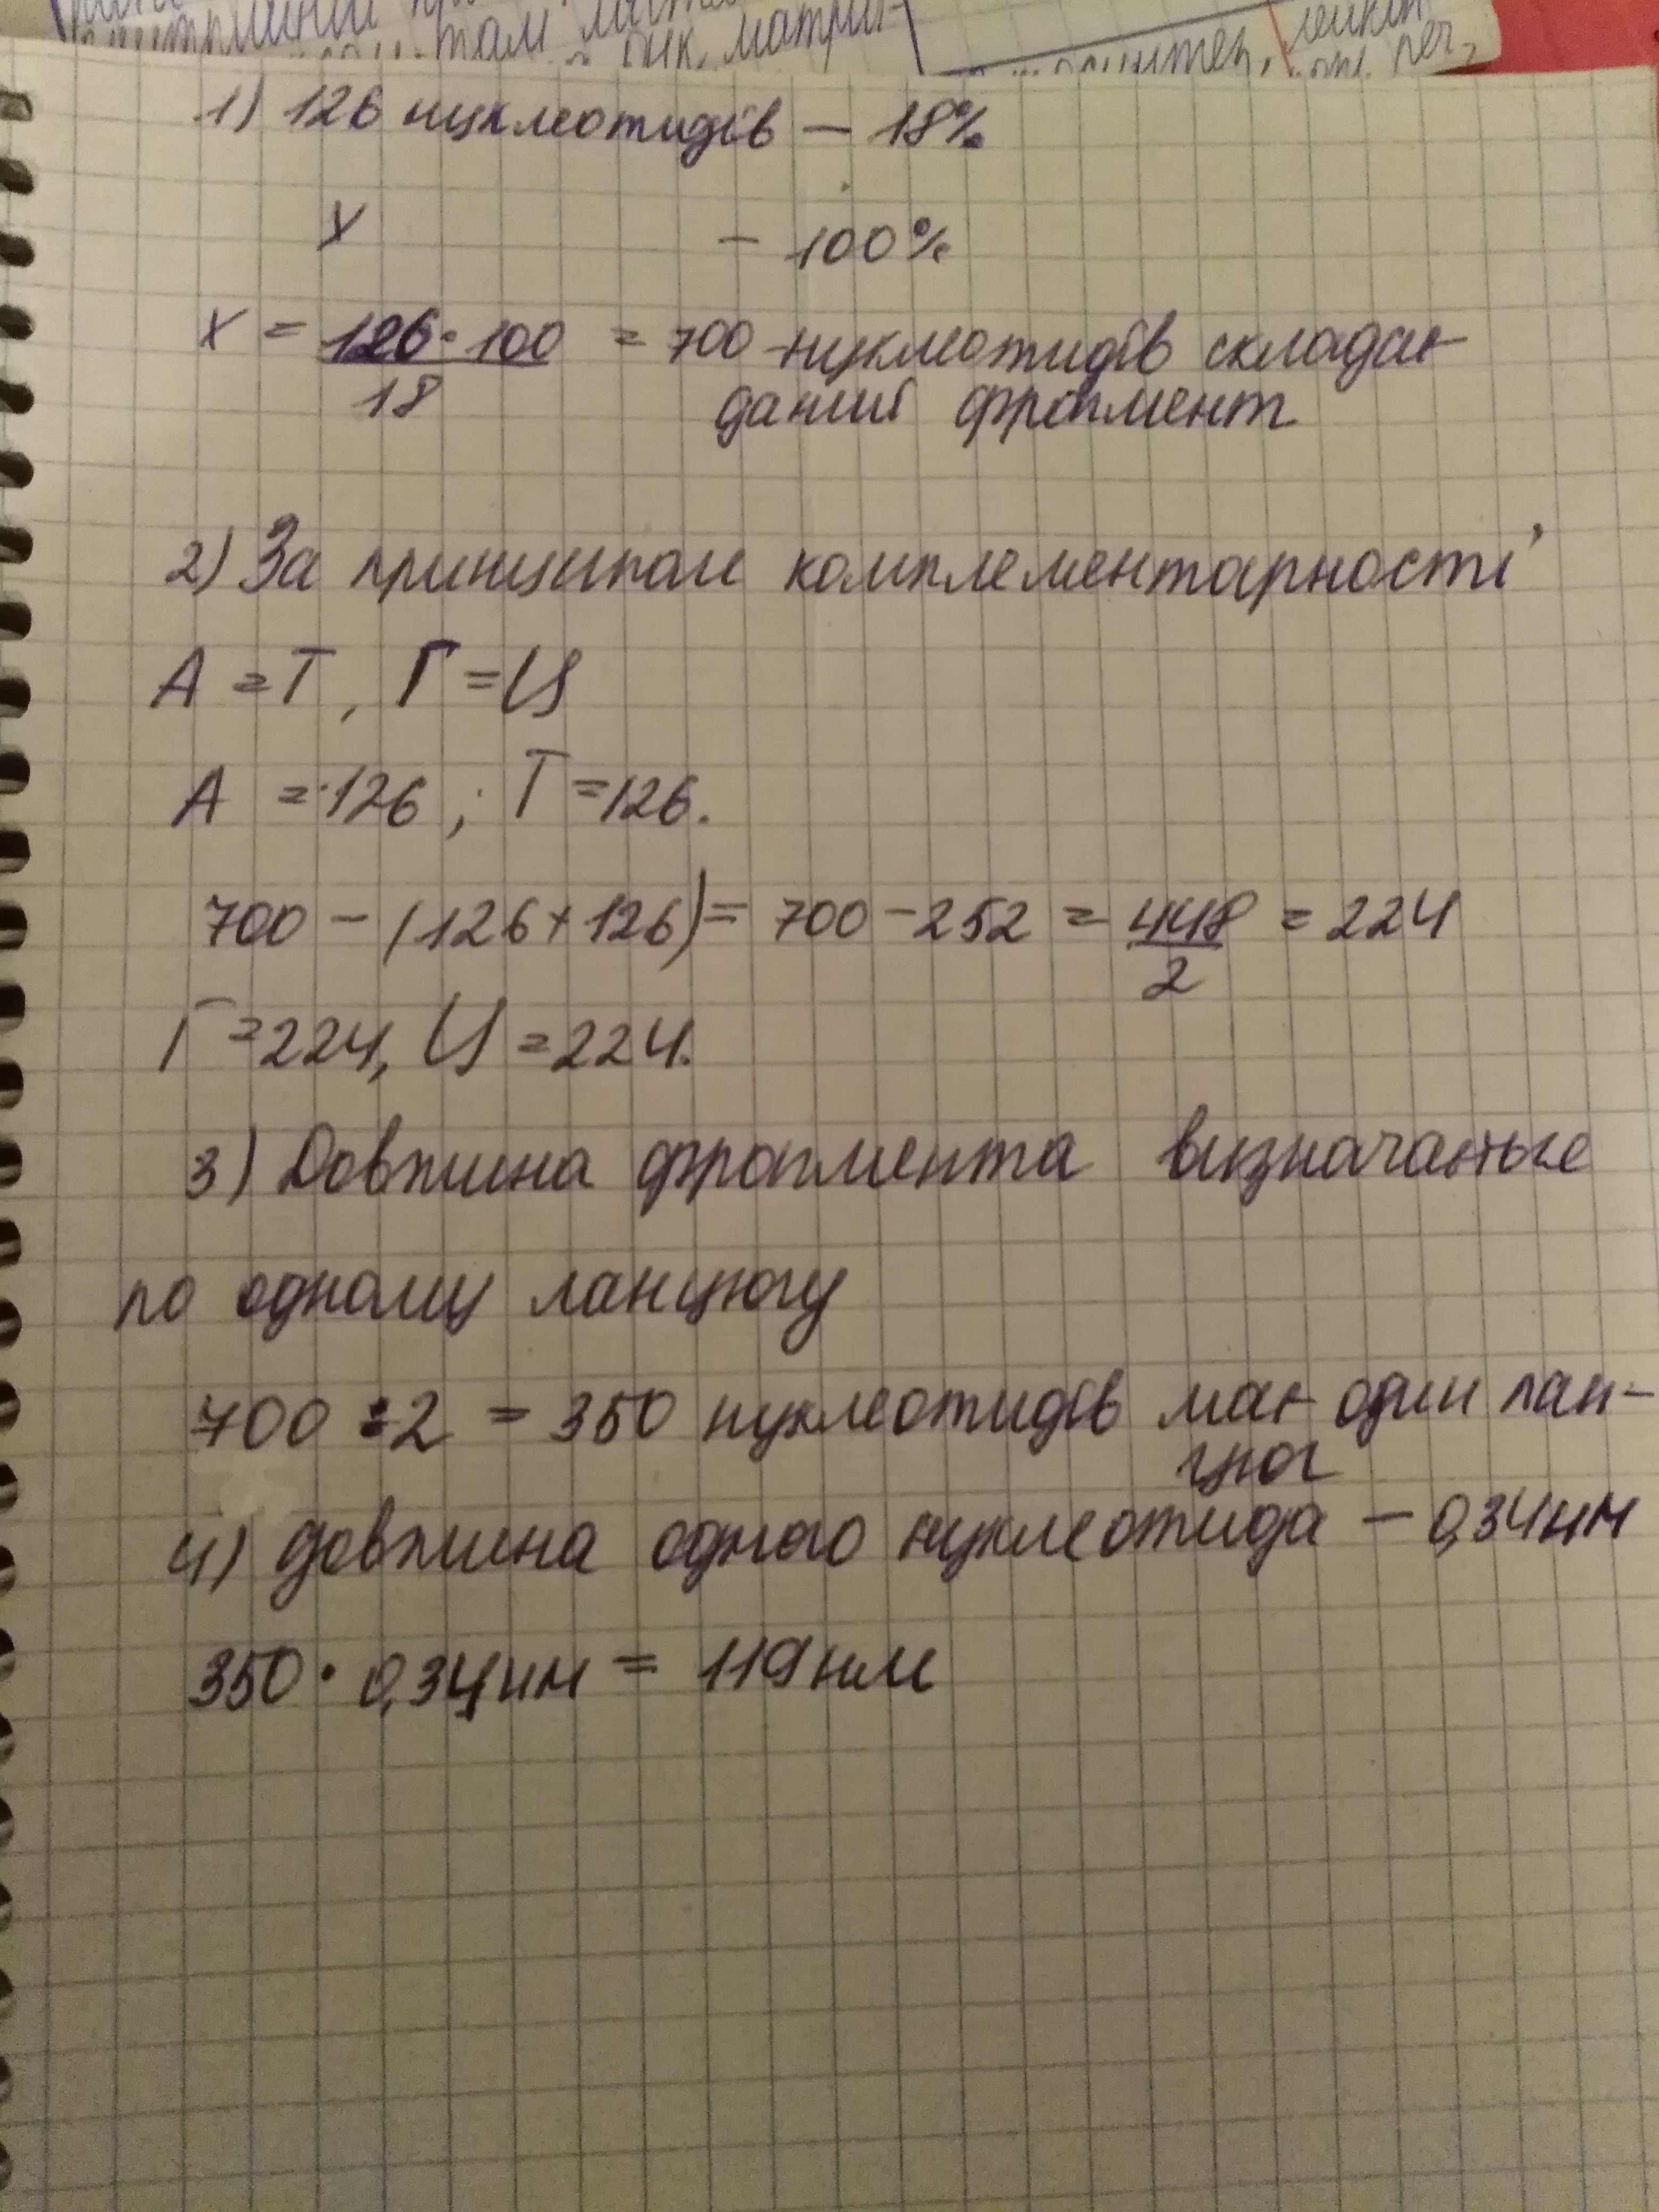 там
матри-
1) 126 нуклеотидів — 18%
X — 100%
X = 126·100 = 700 нуклеотидів складає
18 даний фрагмент
2) За принципом комплементарності
А = Т, Г = Ц
А = 126 ; Т = 126.
700 - (126 + 126) = 700 - 252 = 448 = 224
2
Г = 224, Ц = 224.
3) Довжина фрагмента визначається
по одному ланцюгу
700 : 2 = 350 нуклеотидів має один лан-
цюг
4) Довжина одного нуклеотида — 0,34нм
350 · 0,34нм = 119нм